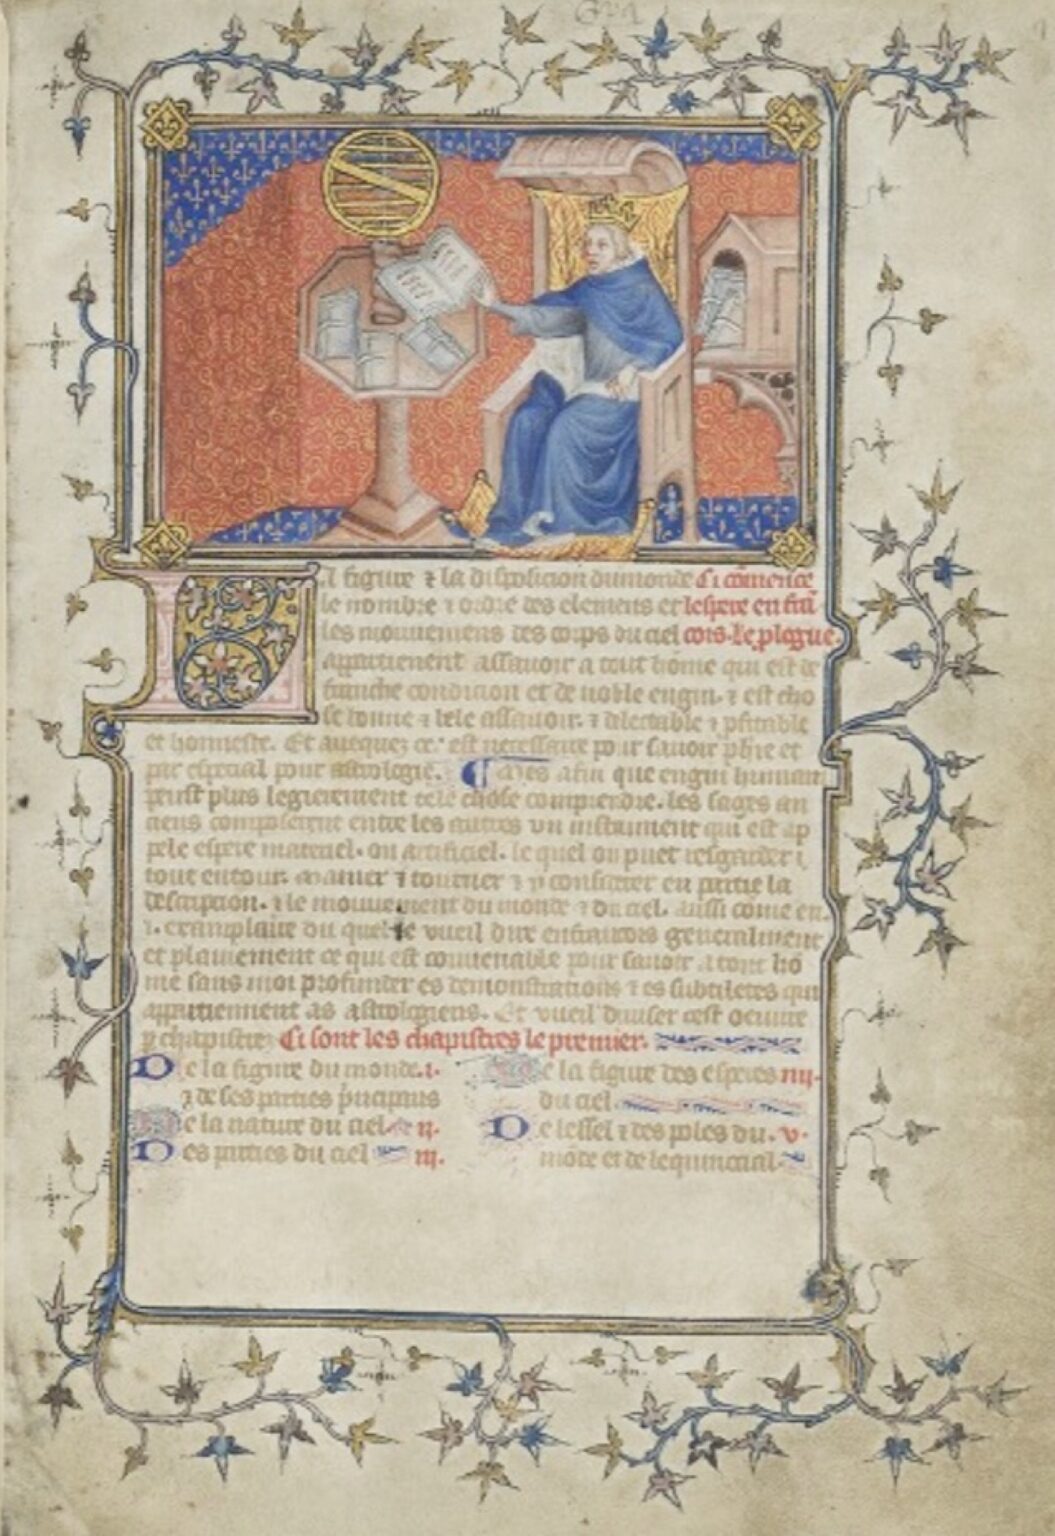 La figure ⁊ la disposicion du monde Ci cōmence
le nombre ⁊ ordre des elemens et lespere en frā
les mouuemens des corps du ciel cois. Le plogue.
appartienent assauoir a tout hōme qui est de
franche condicion et de noble engin. ⁊ est cho
se bonne ⁊ bele assauoir. ⁊ delectable ⁊ pfitable
et honneste. Et auequez ce est necessaire pour sauoir phie et
par especial pour astrologie. ¶ Mes afin que engin humain
puist plus legierement tele chose comprendre. les sages an
ciens composerent entre les autres vn instrument qui est ap
pele espere materiel. ou artificiel. le quel on puet resgarder
tout entour. manier ⁊ tourner ⁊ y considerer en partie la
descripcion. ⁊ le mouuement du monde ⁊ du ciel. aussi cōme en
.i. exemplaire du quel ie vueil dire en francois generalment
et plainement ce qui est conuenable pour sauoir a tout hō
me sans moi profunder es demonstracions ⁊ es subtiletes qui
appartienent as astrologiens. Et vueil diuiser cest oeuure
p chapistres Ci sont les chapistres le premier.
De la figure du monde .i.
⁊ de ses parties pncipaus
De la nature du ciel ii.
Des parties du ciel iii.
De la figure des esperes iiii.
du ciel
De lessel ⁊ des poles du .v.
mōde et de lequinccial